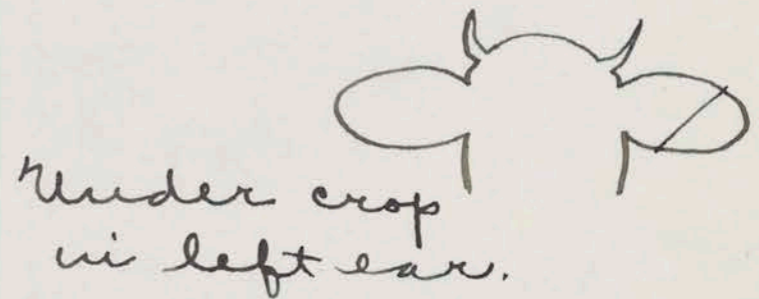 Under crop
in left ear.